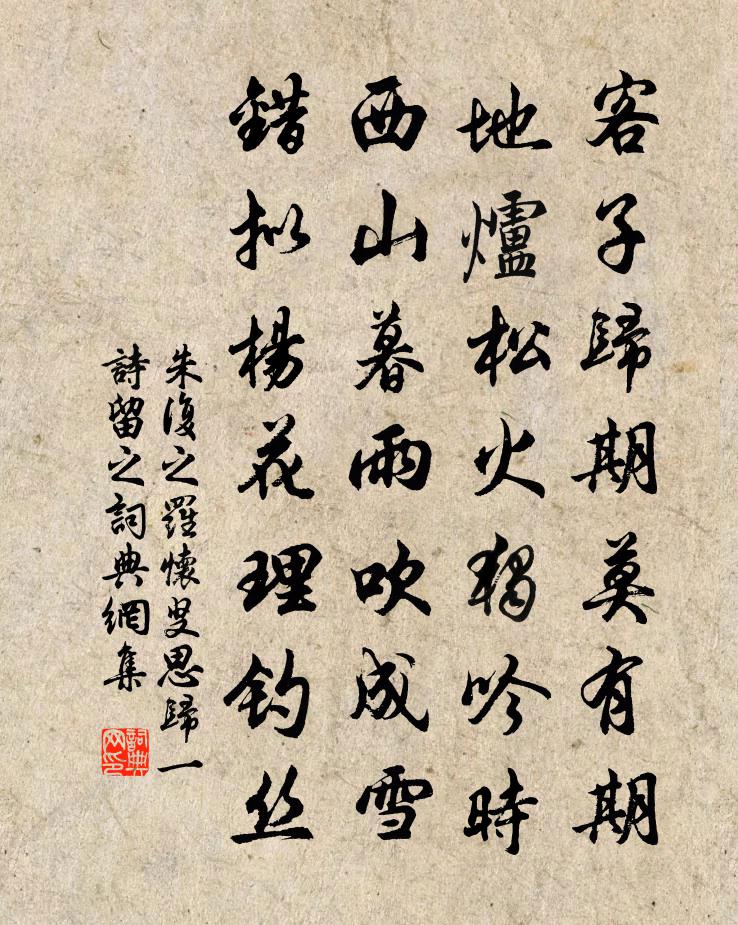 客子歸期莫有期
地爐松火獨吟時
西山暮雨吹成雪
錯拟楊花理釣丝
朱復之羅懷叟思歸一
詩留之詞典網集
詞典网印